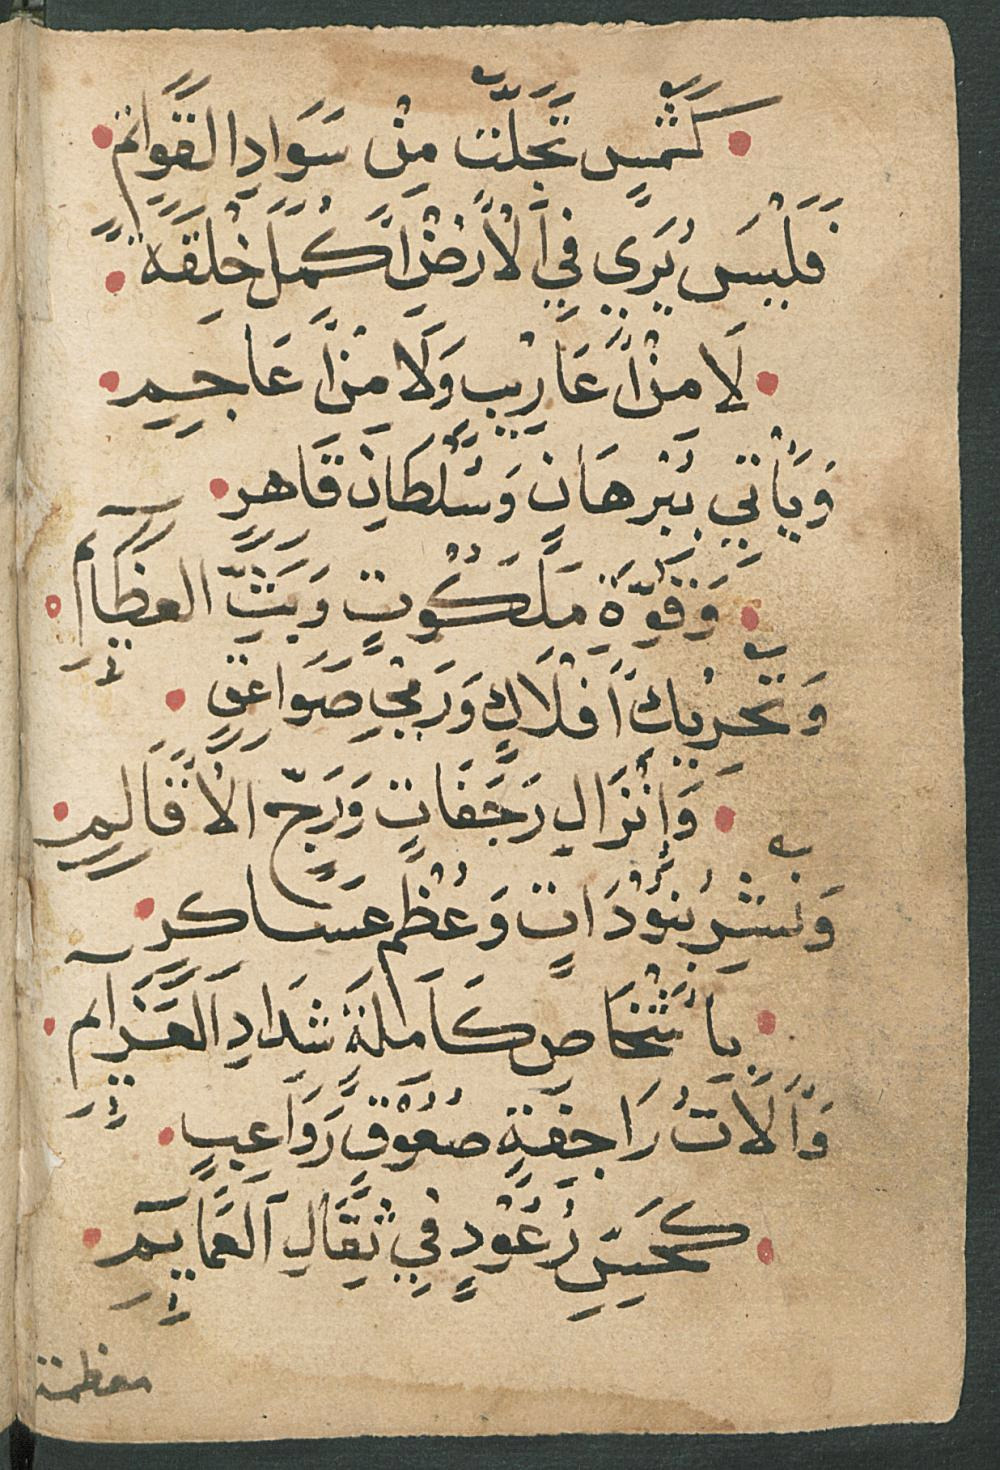 كَشَمْسٍ تَجَلَّتْ مِنْ سَوَادِ القَوَاتِمِ
فَلَيْسَ يُرَي فِي الْأَرْضِ أَكْمَلَ خِلْقَةً
لَا مِنْ أَعَارِيْبٍ وَلَا مِنْ أَعَاجِمِ
وَيَأْتِي بِبُرْهَانٍ وَسُلْطَانٍ قَاهِرٍ
وَقُوَّةِ مَلَكُوْتٍ وَبَثِّ العَظَآئِمِ
وَتَحْرِيكِ أَفْلَاكٍ وَرَمْيِ صَوَاعِقٍ
وَإِنْزَالِ رَجَفَاتٍ وَرَجّ الأَقَالِيمِ
وَنَشْرِ بُنُوْدَاتٍ وَعُظْمِ عَسَاكِرٍ
بِأَشْخَاصٍ كَامِلَةٍ شِدَادِ العَزَآئِمِ
وَآلَاتُ رَاجِفَةٍ صُعُوْقٍ رَوَاعِبٍ
كَحِسِّ رُعُوْدٍ فِي ثِقَالِ الغَمَايِٓمِ
معظمة